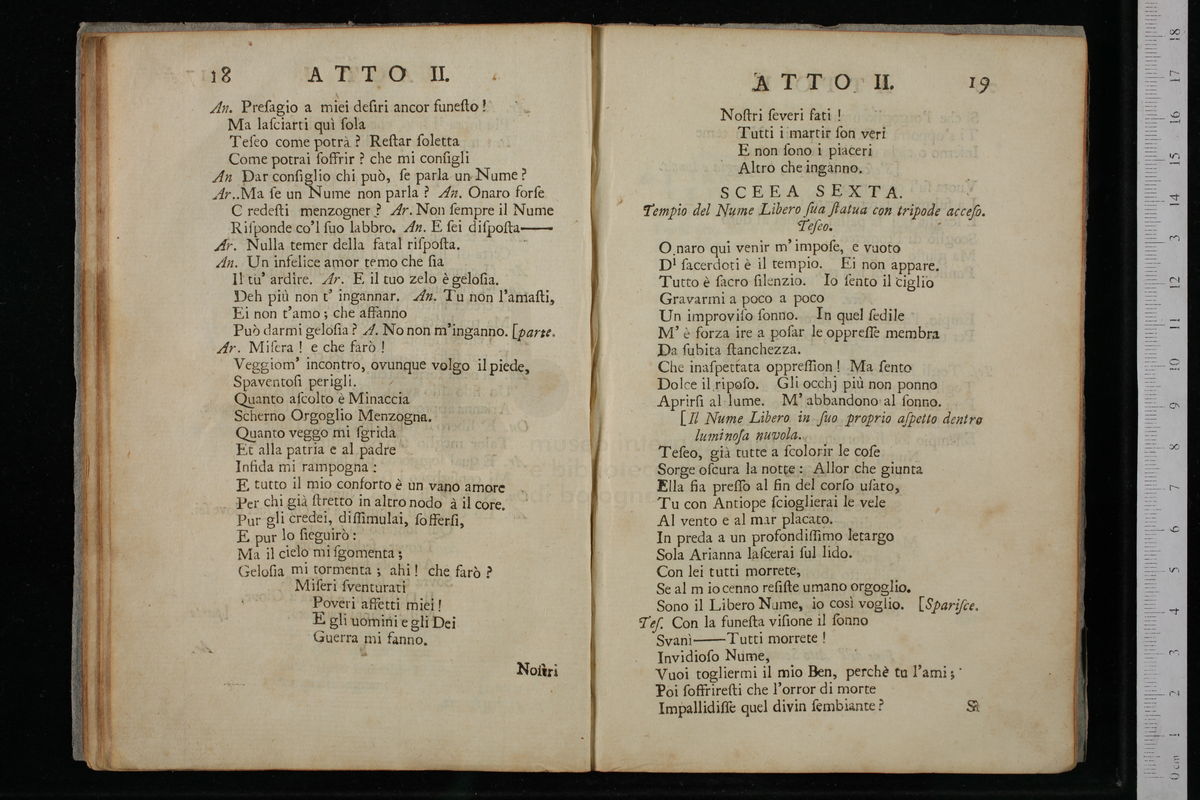 18 ATTO II.
An. Preſagio a miei deſiri ancor funeſto !
Ma laſciarti quì ſola
Teſeo come potrà ? Reſtar ſoletta
Come potrai ſoffrir ? che mi conſigli
An Dar conſiglio chi può, ſe parla un Nume ?
Ar..Ma ſe un Nume non parla ? An. Onaro forſe
C redeſti menzogner ? Ar. Non ſempre il Nume
Riſponde co'l ſuo labbro. An. E ſei diſpoſta——
Ar. Nulla temer della fatal riſpoſta.
An. Un infelice amor temo che ſia
Il tu' ardire. Ar. E il tuo zelo è geloſia.
Deh più non t' ingannar. An. Tu non l'amaſti,
Ei non t'amo ; che affanno
Può darmi geloſia ? A. No non m'inganno. [parte.
Ar. Miſera ! e che farò !
Veggiom' incontro, ovunque volgo il piede,
Spaventoſi perigli.
Quanto aſcolto è Minaccia
Scherno Orgoglio Menzogna.
Quanto veggo mi ſgrida
Et alla patria e al padre
Infida mi rampogna :
E tutto il mio conforto è un vano amore
Per chi già ſtretto in altro nodo à il core.
Pur gli credei, diſſimulai, ſofferſi,
E pur lo ſieguirò :
Ma il cielo mi ſgomenta ;
Geloſia mi tormenta ; ahi ! che farò ?
Miſeri ſventurati
Poveri affetti miei !
E gli uomini e gli Dei
Guerra mi fanno.
Noſtri
ATTO II. 19
Noſtri ſeveri fati !
Tutti i martir ſon veri
E non ſono i piaceri
Altro che inganno.
SCEEA SEXTA.
Tempio del Nume Libero ſua ſtatua con tripode acceſo.
Teſeo.
O naro qui venir m' impoſe, e vuoto
D¹ ſacerdoti è il tempio. Ei non appare.
Tutto è ſacro ſilenzio. Io ſento il ciglio
Gravarmi a poco a poco
Un improviſo ſonno. In quel ſedile
M' è forza ire a poſar le oppreſſe membra
Da ſubita ſtanchezza.
Che inaſpettata oppreſſion ! Ma ſento
Dolce il ripoſo. Gli occhj più non ponno
Aprirſi al lume. M' abbandono al ſonno.
[Il Nume Libero in ſuo proprio aſpetto dentro
luminoſa nuvola.
Teſeo, già tutte a ſcolorir le coſe
Sorge oſcura la notte : Allor che giunta
Ella ſia preſſo al fin del corſo uſato,
Tu con Antiope ſcioglierai le vele
Al vento e al mar placato.
In preda a un profondiſſimo letargo
Sola Arianna laſcerai ſul lido.
Con lei tutti morrete,
Se al m io cenno reſiſte umano orgoglio.
Sono il Libero Nume, io così voglio. [Spariſce.
Teſ. Con la funeſta viſione il ſonno
Svanì——Tutti morrete !
Invidioſo Nume,
Vuoi togliermi il mio Ben, perchè tu l'ami ;
Poi ſoffrireſti che l'orror di morte
Impallidiſſe quel divin ſembiante ?